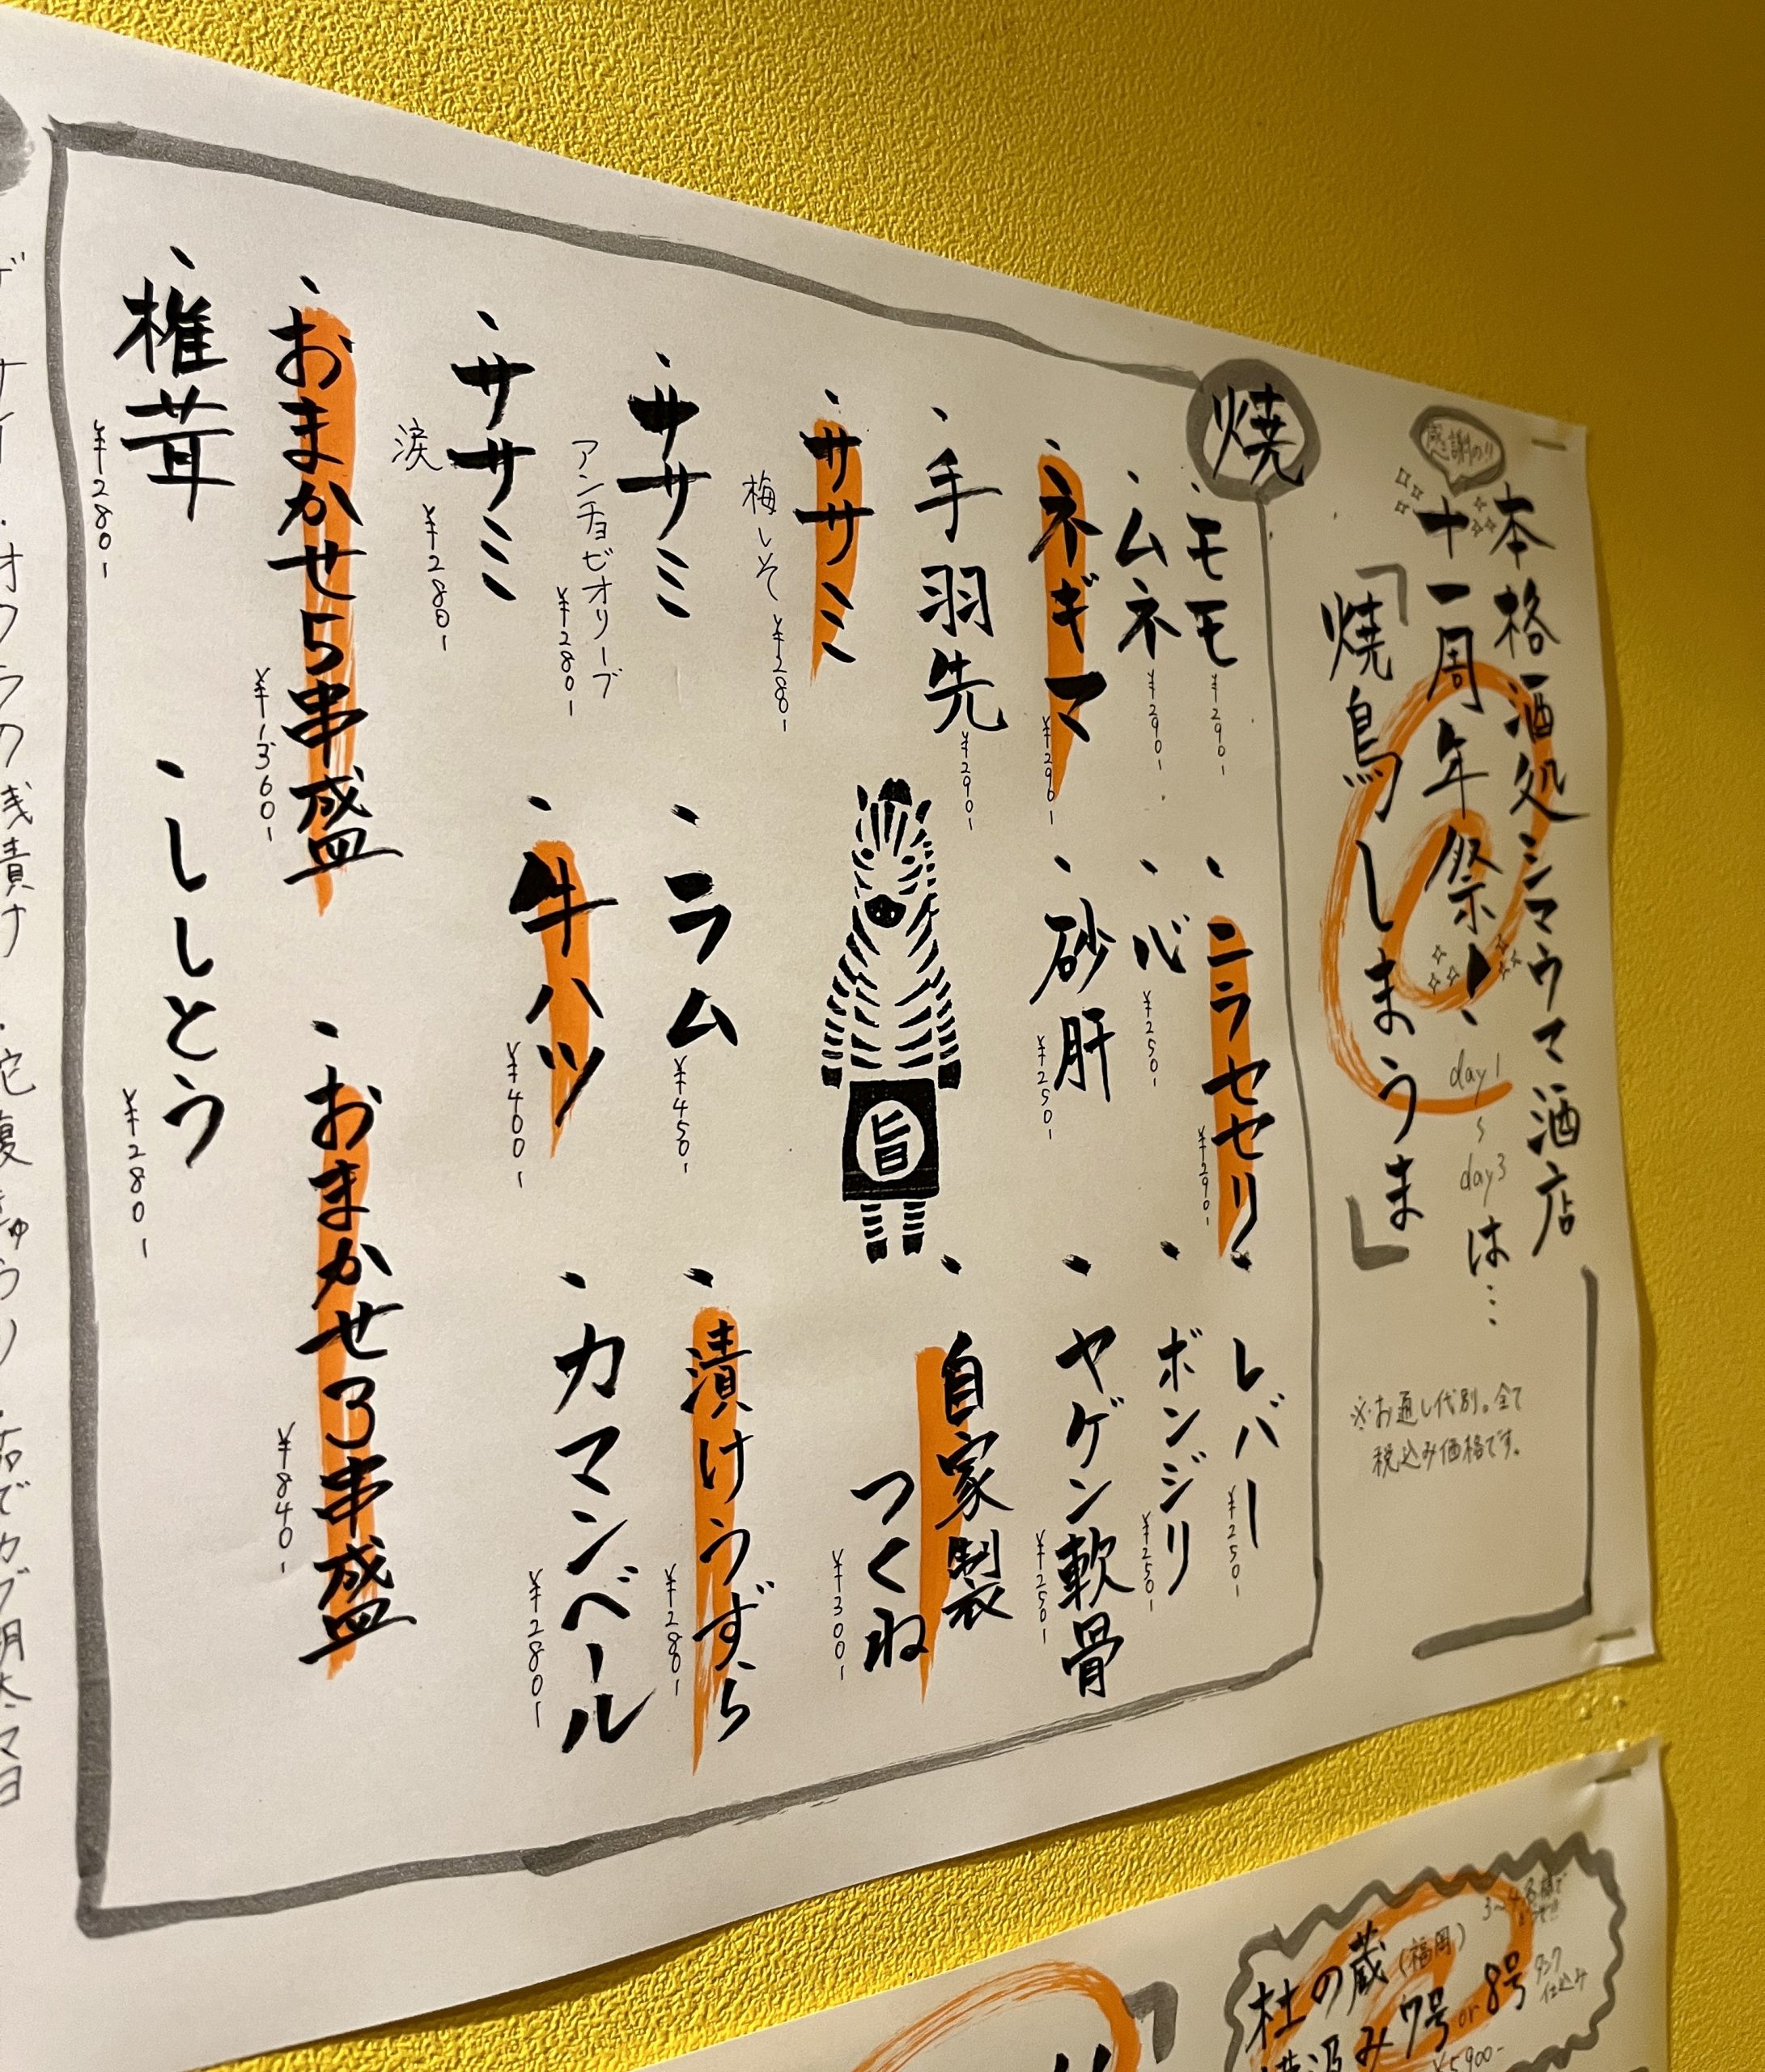 本格酒処シマウマ酒店
感謝の!!
十一周年祭!、day1〜day3は…
「焼鳥しまうま」
※お通し代別。全て
税込み価格です。
焼
・モモ ¥290-
・ニラセセリ ¥290-
・レバー ¥250-
・ムネ ¥290-
・心 ¥250-
・ボンジリ ¥250-
・ネギマ ¥290-
・砂肝 ¥250-
・ヤゲン軟骨 ¥250-
・手羽先 ¥290-
・自家製
つくね ¥300-
旨
・ササミ
梅しそ ¥280-
・ササミ
アンチョビオリーブ ¥280-
・ラム ¥450-
・漬けうずら ¥280-
・ササミ
涙 ¥280-
・牛ハツ ¥400-
・カマンベール ¥280-
・おまかせ5串盛 ¥1360-
・おまかせ3串盛 ¥840-
・椎茸 ¥280-
・ししとう ¥280-
・オクラの浅漬け
杜の蔵(福岡)
7号or8号
タンク
仕込み
¥5900-